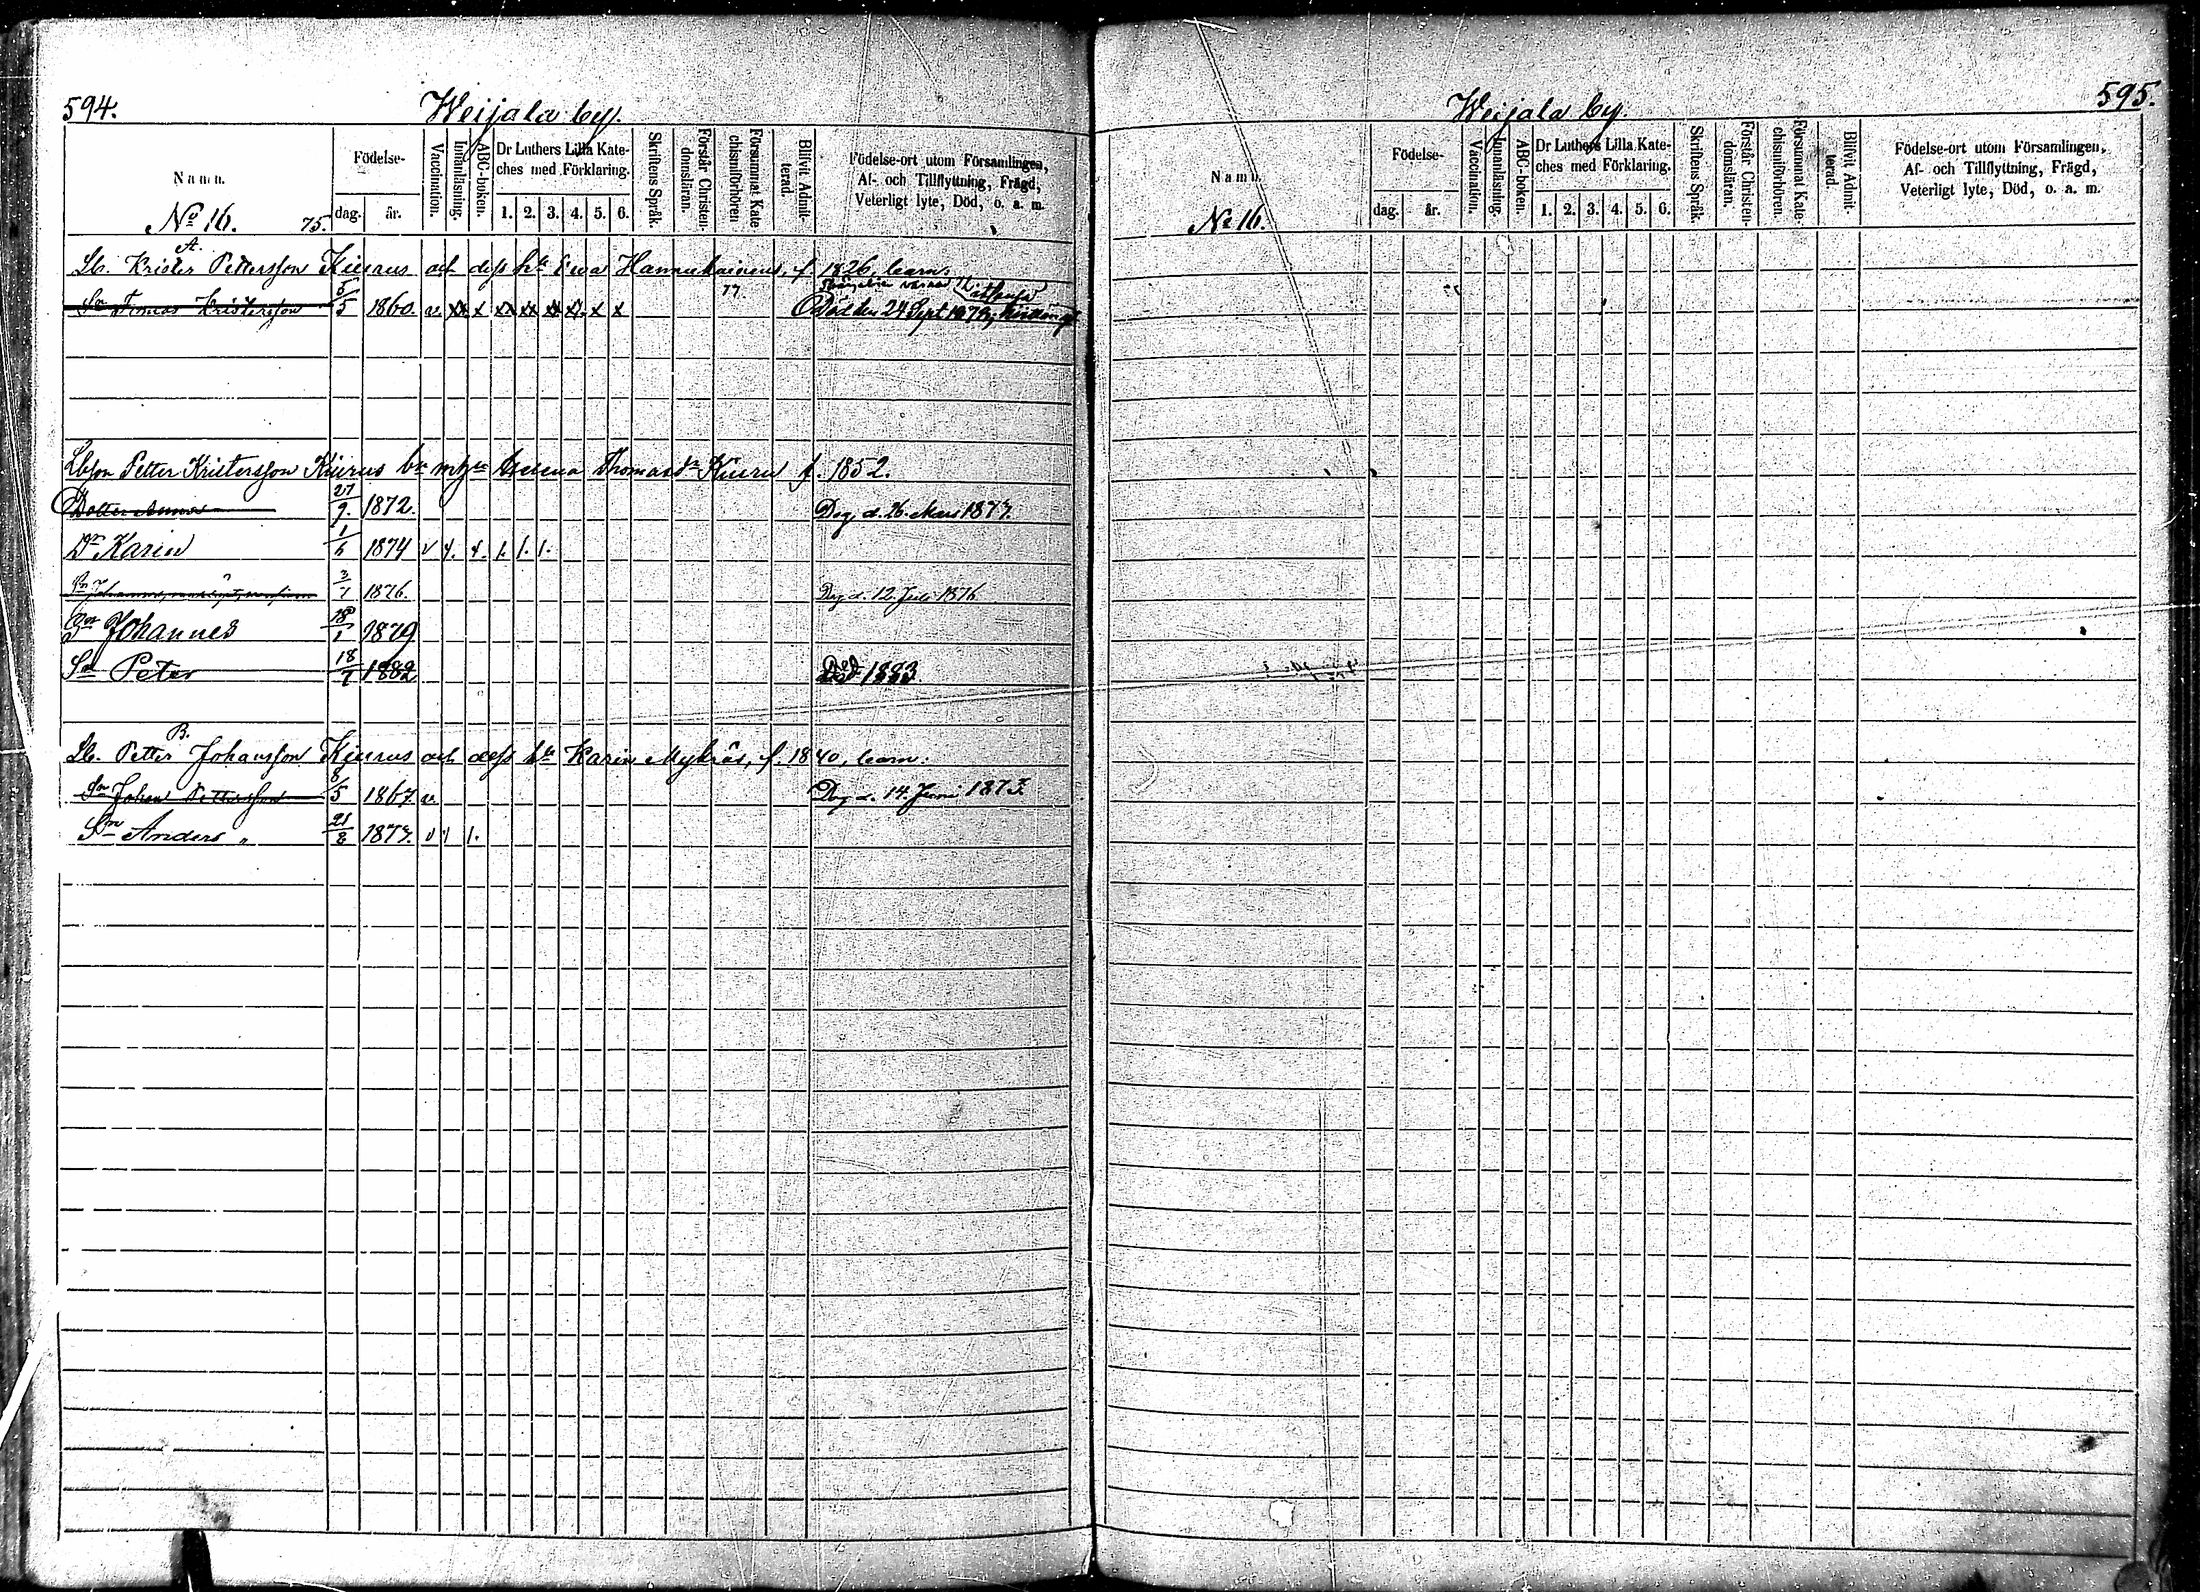 594. Weijala by.
Namn.
No 16. 75.
Födelse-
dag. år.
Vaccination.
Innanläsning.
ABC-boken.
Dr Luthers Lilla Kate-
ches med Förklaring.
1. 2. 3. 4. 5. 6.
Skriftens Språk.
Förstår Christen-
domsläran.
Försummat Kate
chismiförhören
Blifvit Admit-
terad.
Födelse-ort utom Församlingen,
Af- och Tillflyttning, Frägd,
Veterligt lyte, Död, o. a. m.
A.
Lb. Krister Pettersson Kiurus och dess h:u Ewa Hannukainens, f. 1826, barn:
Sn Tomas Kristersson 5/5 1860. v. x x x x x x x x 77 Död den 24 Sept
Lbson Petter Kristersson Kiurus b:n m h:u Thomasdr Kiuru f. 1852.
Dotter Anna 27/9. 1872. Dog d. 26. Mars 1877.
Dr Karin 1/6 1874 v
Sn Johannes 3/7 1876. Dog d. 12. Juli 1876
Son Johannes 18/1 1879
Sn Peter 18/7 1882 Död 1883.
B.
Lb. Petter Johansson Kiurus och dess h:u Karin Mykräs, f. 1840, barn:
Sn Johan Pettersson 8/5 1867. v. Dog d. 14. Juni 1873.
Sn Anders „ 21/8 1877. v
Weijala by. 595.
Namn.
No 16.
Födelse-
dag. år.
Vaccination.
Innanläsning.
ABC-boken.
Dr Luthers Lilla Kate-
ches med Förklaring.
1. 2. 3. 4. 5. 6.
Skriftens Språk.
Förstår Christen-
domsläran.
Försummat Kate-
chismiförhören.
Blifvit Admit-
terad.
Födelse-ort utom Församlingen,
Af- och Tillflyttning, Frägd,
Veterligt lyte, Död, o. a. m.